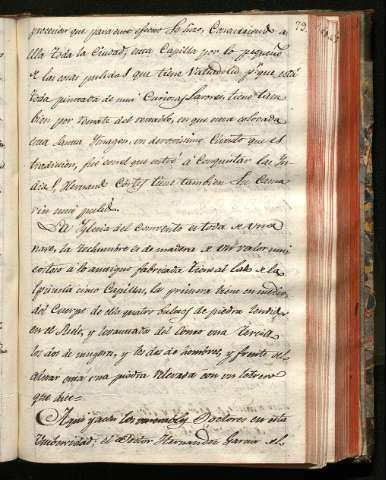 79.
procurar que para este efecto se hizo, Concurriendo a
ella toda la Ciudad, esta Capilla por lo pequeño
de las cosas pulidas que tiene Valladolid, y que está
toda pintada de muy Curiosas Lavores, tiene tam
bien por remate del retablo, en que está colocada
esta Santa Imagen, un devotissimo Cristo que es
tradicion, fue con el que entró a Conquistar las In
dias D. Hernando Cortés, tiene tambien su Cama
rin muy pulido.
La Yglesia del Convento es toda de una
nave, la techumbre es de madera de un valor mui
costoso a lo antiguo fabricada tiene al lado de la
Epistola cinco Capillas, la primera tiene en medio
del Cuerpo de ella quatro bultos de piedra tendidos
en el suelo, y levantados del como una tercia
los dos de mugeres, y los dos de hombres, y frente del
Altar está una piedra relevada con un letrero
que dice =
Aqui yacen los Doctores en esta
Universidad; el Doctor Hernando Garcia el